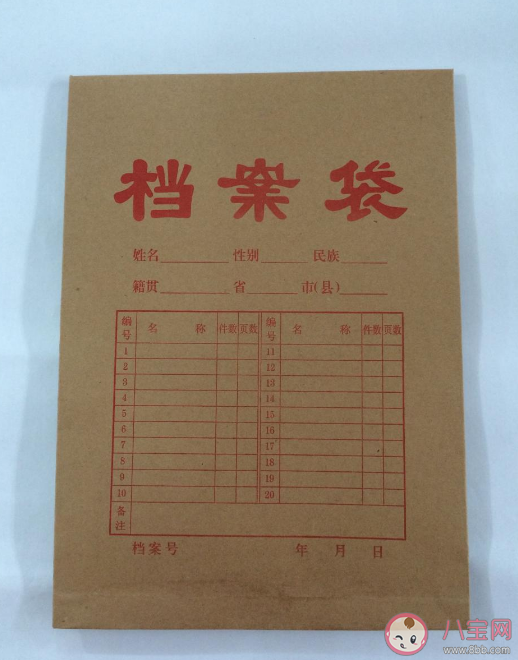 档案袋
姓名 性别 民族
籍贯 省 市(县)
编号 名 称 件数 页数 编号 名 称 件数 页数
1 11
2 12
3 13
4 14
5 15
6 16
7 17
8 18
9 19
10 20
备注
档案号 年 月 日
八宝网
www.8bb.com